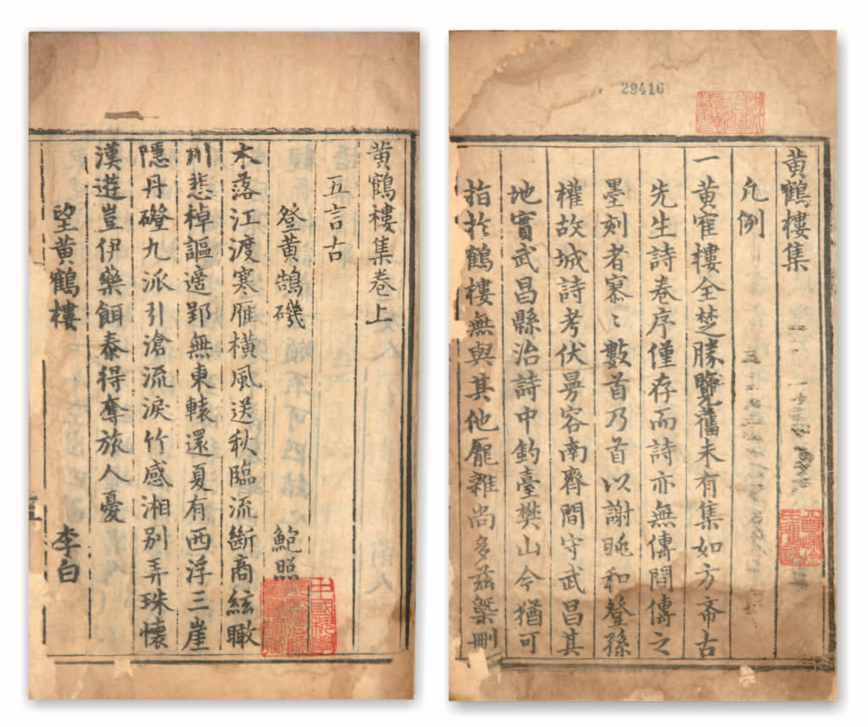 29416
黄鶴樓集
凡例
一黄寉樓全楚勝覽舊未有集如方斋古
先生詩卷序僅存而詩亦無傳閒傳之
墨刻者寡〻數首乃首以謝朓和登孫
權故城詩考伏曼容南齊間守武昌其
地實武昌縣治詩中釣臺樊山今猶可
指扵鶴樓無與其他厖雜尚多兹槩刪
黄鶴樓集卷上
五言古
登黄鵠磯 鮑照
木落江渡寒雁横風送秋臨流斷商絃瞰
川悲棹謳適郢無東轅還夏有西浮三崖
隱丹磴九派引滄流淚竹感湘别弄珠懷
漢遊豈伊藥餌泰得奪旅人憂
望黄鶴樓 李白